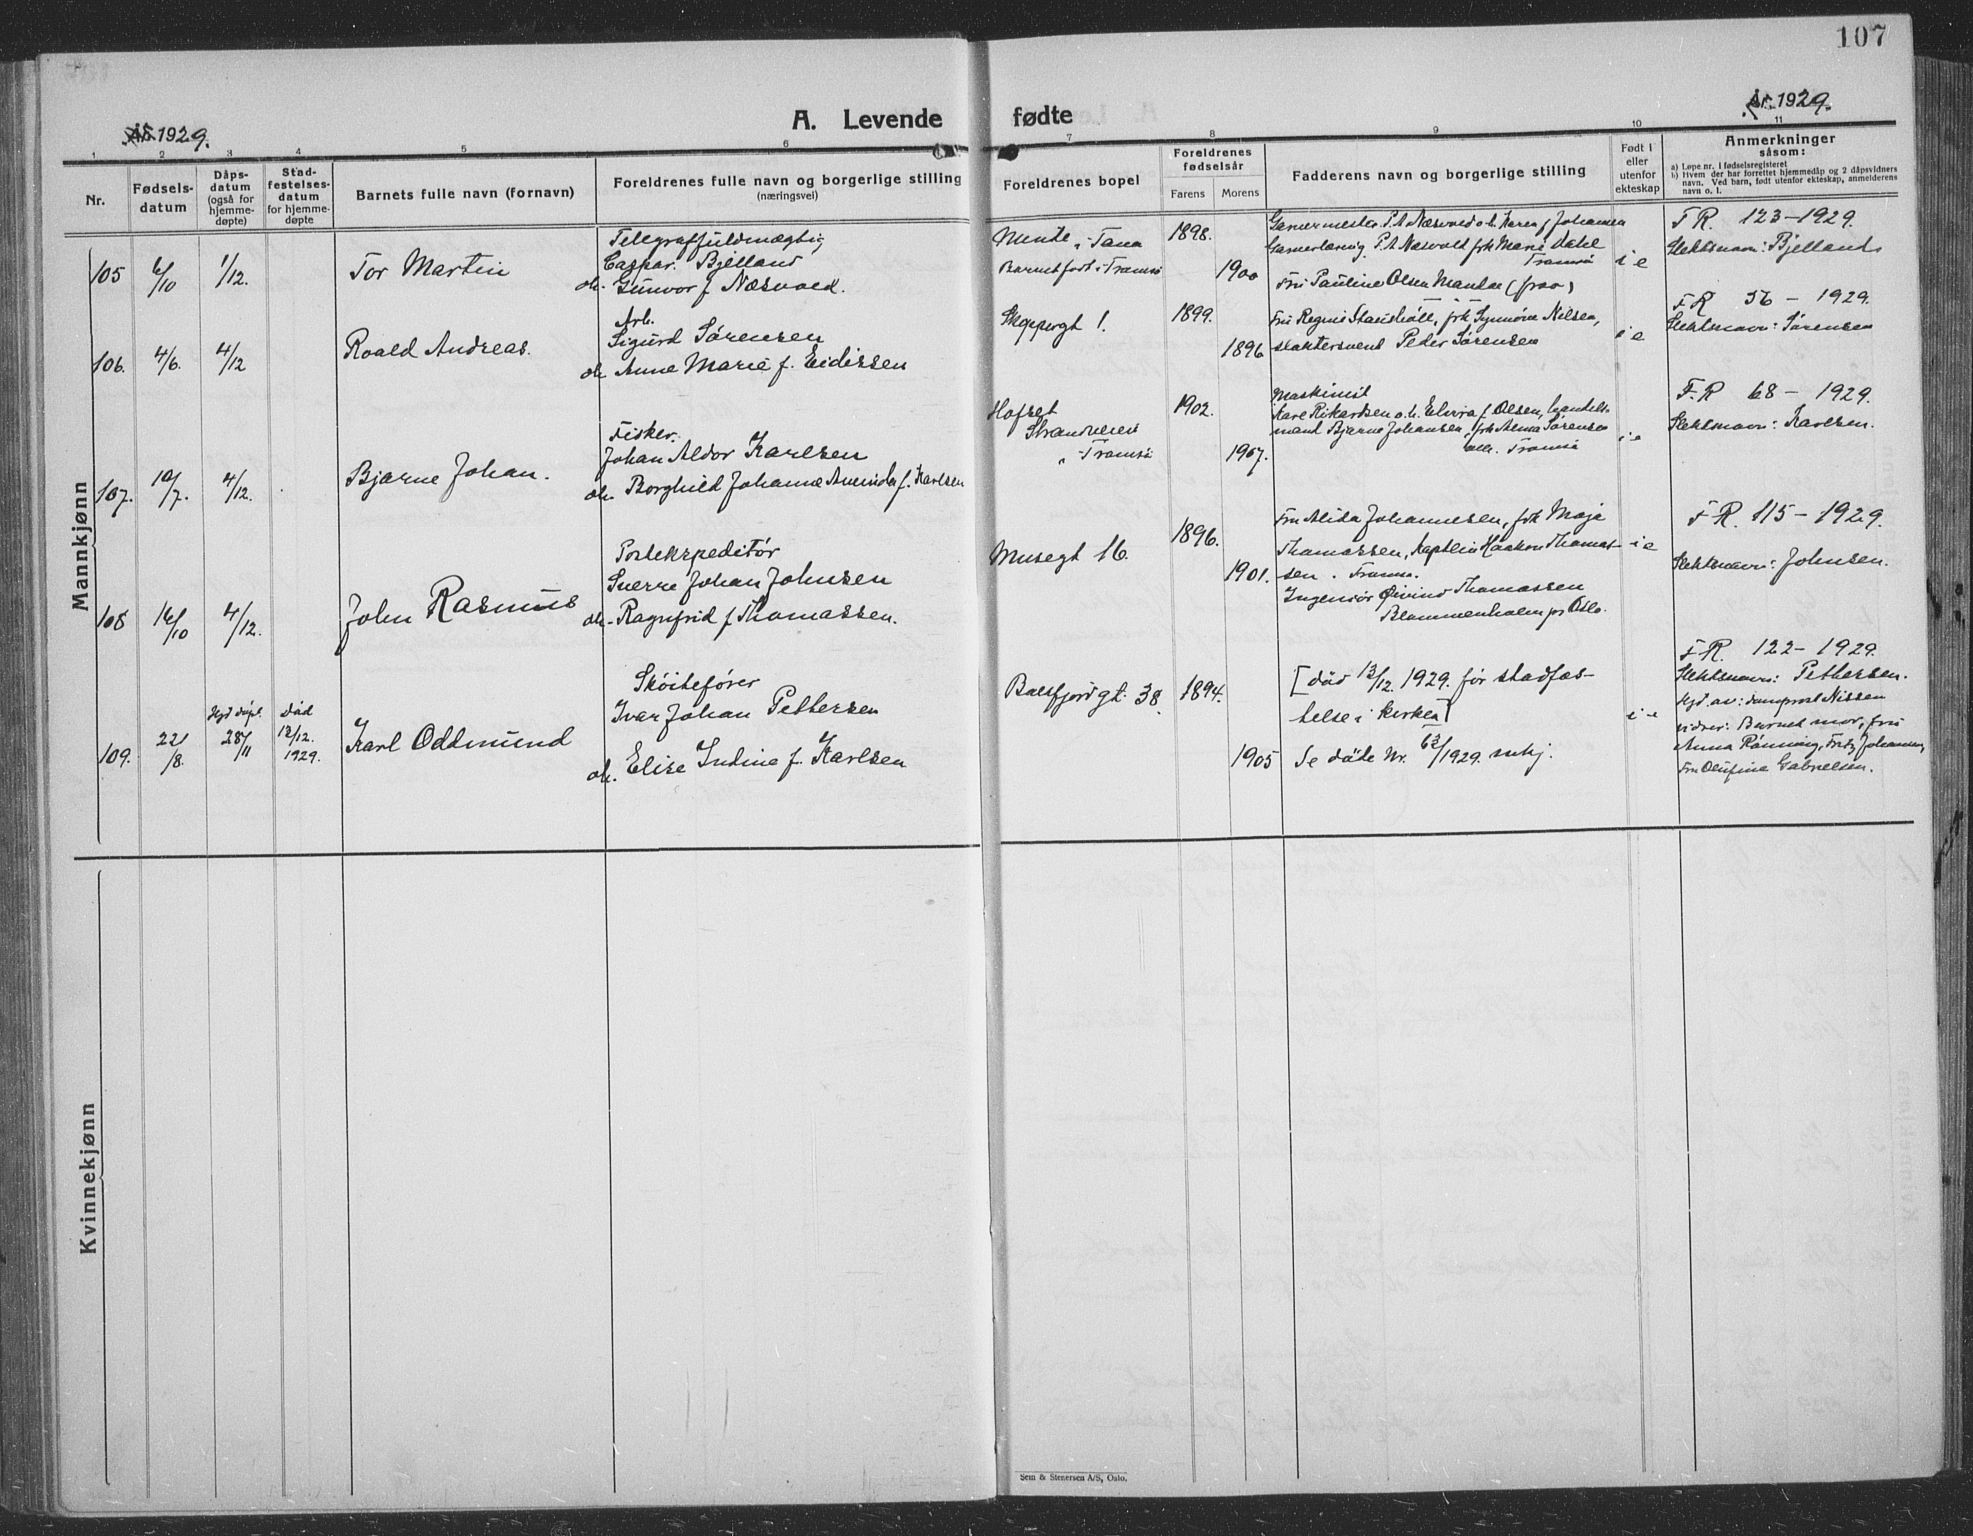 107
År 1929.
A. Levende fødte
År 1929.
1 2 3 4 5 6 7 8 9 10 11
Nr.
Fødsels-
datum
Dåps-
datum
(også for
hjemme-
døpte)
Stad-
festelses-
datum
for hjemme-
døpte
Barnets fulle navn (fornavn)
Foreldrenes fulle navn og borgerlige stilling
(næringsvei)
Foreldrenes bopel
Foreldrenes
fødselsår
Farens Morens
Fadderens navn og borgerlige stilling
Født i
eller
utenfor
ekteskap
Anmerkninger
såsom:
a) Løpe nr. i fødselsregisteret
b) Hvem der har forrettet hjemmedåp og 2 dåpsvidners
navn. Ved barn, født utenfor ekteskap, anmelderens
navn o. l.
Mannkjønn
105 6/10 1/12. Tor Martin
Telegraffuldmægtig
Caspar Bjelland
oh. Gunvor f. Næsvold.
Barnet født i Tromsø
1898.
1900
Garvermester P. A. Næsvold o. h. Karen f. Johansen
Garverlærling P. A. Næsvold frk Marie Dahl
Tromsø
Fru Pauline Olsen
i e
F.R. 123-1929.
Slektsnavn: Bjelland
106. 4/6. 4/12 Roald Andreas.
Arb.
Sigurd Sørensen
oh. Anne Marie f. Eidissen
Skippergt 1.
1899.
1896
Nilsen,
slaktersvend Peder Sørensen
i e
F.R 56 - 1929.
Slektsnavn: Sørensen
107. 10/7. 4/12. Bjarne Johan.
Fisker.
Johan Aldor Karlsen
oh. Borghild Johanne f. Karlsen
Strandveien
" Tromsø
1902.
1907.
Maskinist
Kare Rikardsen o. h. Elvira f. Olsen, handels-
mand Bjarne Johansen, frk Alma Sørensen
alle Tromsø
i e
F.R 68 - 1929.
Slektsnavn: Karlsen.
108 16/10 4/12. John Rasmus
Postekspeditør
Sverre Johan Johnsen
oh. Ragnfrid f Thomassen.
Musegt 16.
1896.
1901.
Fru Alida Johannesen, frk Maja
Thomassen, Kaptein Haakon Thomas-
sen. Tromsø.
Ingeniør Øivind Thomassen
Blommenholm pr Oslo.
i e
F.R. 115 - 1929.
Slektsnavn: Johnsen.
109. 22/8. Hjd døpt 28/11 Død 13/12. 1929. Karl Oddmund
Skøitefører
Ivar Johan Pettersen
oh. Elise Indine f. Karlsen
Balsfjordgt. 38.
1894.
1905
[død 13/12. 1929. før stadfæs-
telse i kirken]
Se døde Nr. 63/1929. mkj.
i e
F.R. 122 - 1929.
Slektsnavn: Pettersen.
Hjd. av: domprost Nissen
vidner: Barnets mor, fru
Anna Rønning, Fritz Johansen,
Fru Olufine Gabrielsen.
Kvinnekjønn
Sem & Stenersen A/S, Oslo.